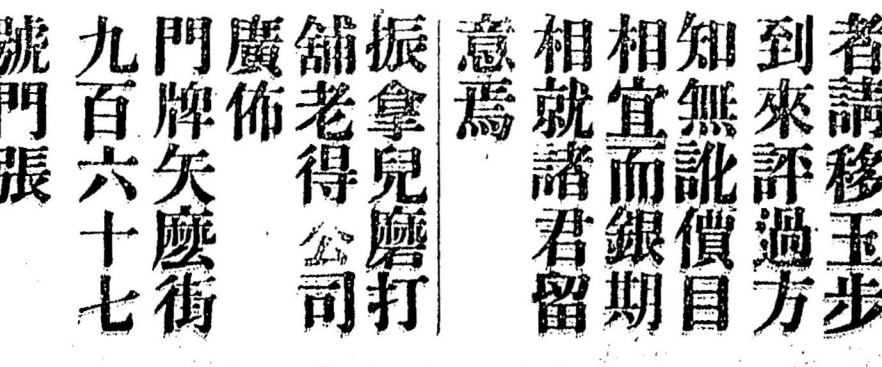 者請移玉步
到來評過方
知無訛價目
相宜而銀期
相就諸君留
意焉
振拿兒磨打
舖老得公司
廣佈
門牌矢麽街
九百六十七
號門張